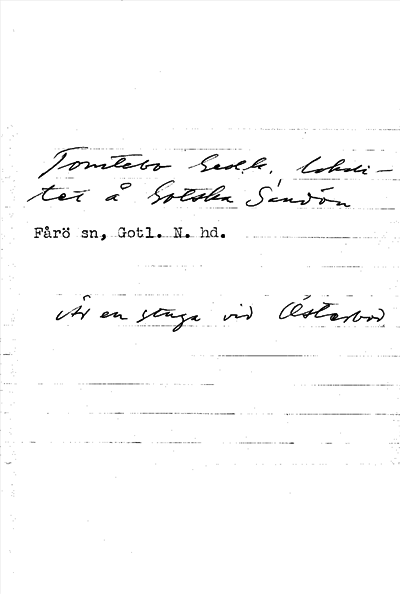 Tomtebo Gedk., lokali-
tet å Gotska Sandön
Fårö sn, Gotl. N. hd.
Är en stuga vid Österbod